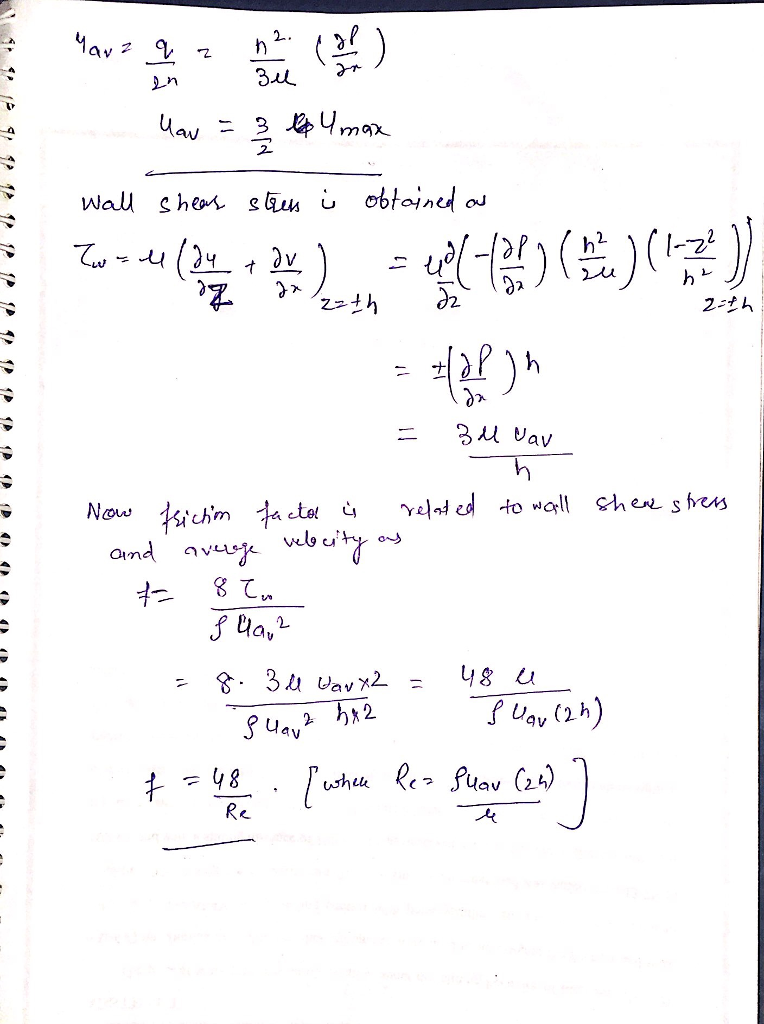 uav = q/2h = h²/3μ (∂P/∂x)
uav = 3/2 umax
wall shear stress is obtained as
τw = μ (∂u/∂z + ∂v/∂x) z=±h = μ ∂/∂z (-(∂P/∂x) (h²/2μ) (1-z²/h²)) z=±h
= ±(∂P/∂x) h
= 3μ uav/h
Now friction factor is related to wall shear stress
and average velocity as
f = 8 τw/ρ uav²
= 8. 3μ uav×2/ρ uav² h×2 = 48 μ/ρ uav (2h)
f = 48/Re . [where Re = ρuav (2h)/μ]